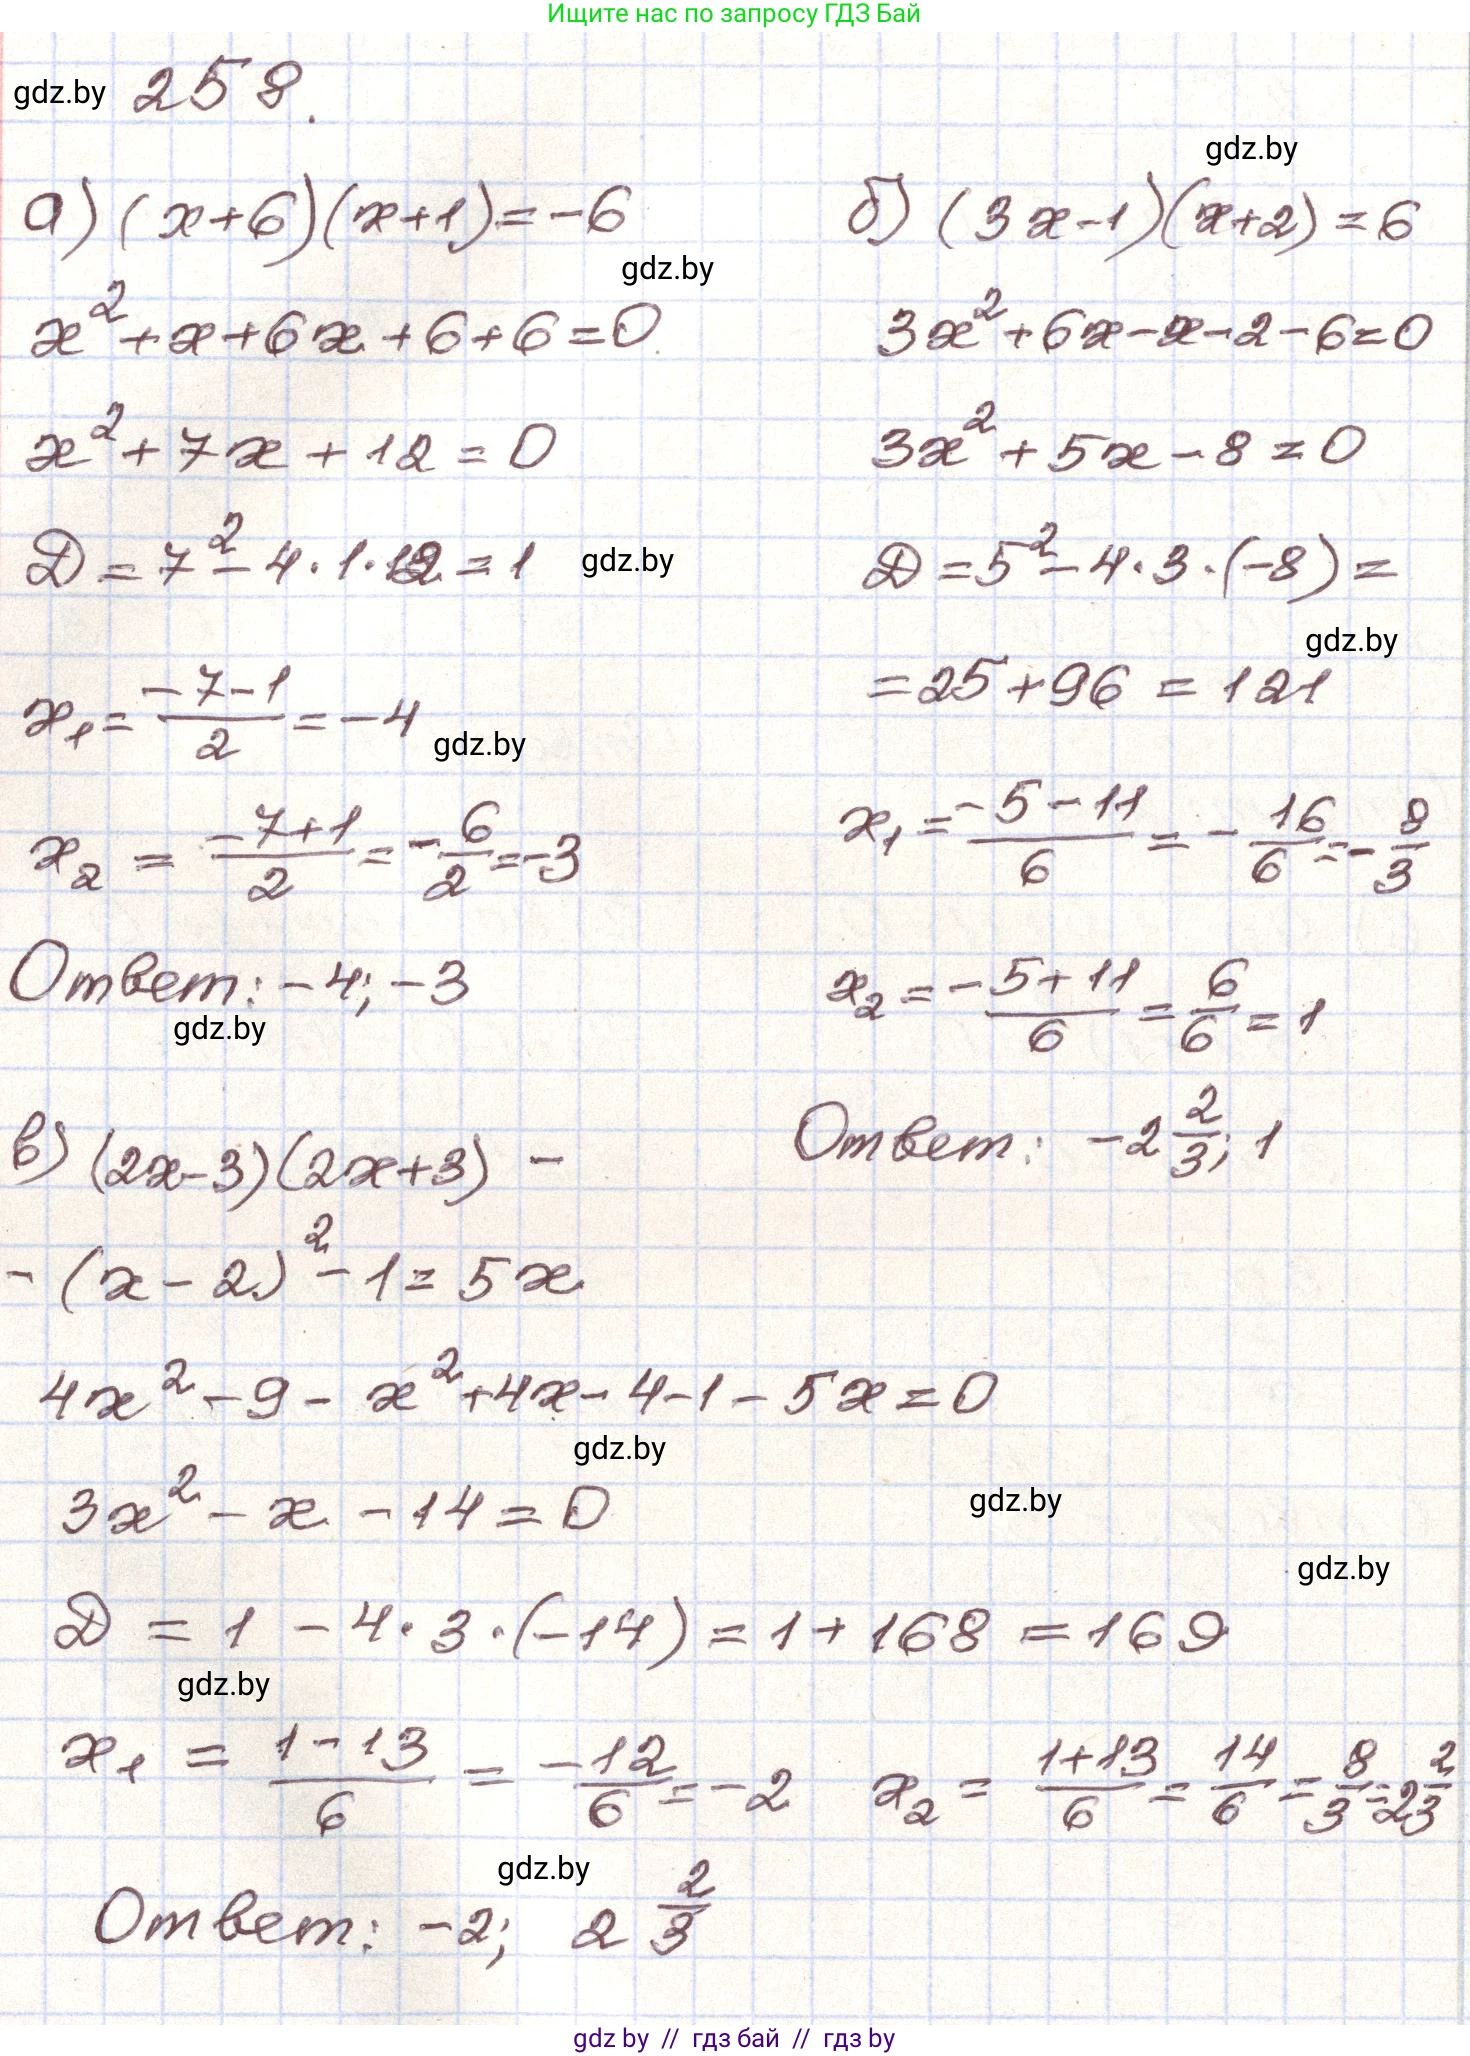 Ищите нас по запросу ГДЗ Бай
gdz.by 258.
gdz.by
а) (x+6)(x+1)=-6
gdz.by
x²+x+6x+6+6=0
x²+7x+12=0
D=7²-4·1·12=1 gdz.by
x₁=(-7-1)/2=-4
gdz.by
x₂=(-7+1)/2=-6/2=-3
Ответ: -4; -3
gdz.by
б) (3x-1)(x+2)=6
3x²+6x-x-2-6=0
3x²+5x-8=0
D=5²-4·3·(-8)=
gdz.by
=25+96=121
x₁=(-5-11)/6=-16/6=-8/3
x₂=(-5+11)/6=6/6=1
Ответ: -2 2/3; 1
в) (2x-3)(2x+3)-
-(x-2)²-1=5x
4x²-9-x²+4x-4-1-5x=0
gdz.by
3x²-x-14=0
gdz.by
gdz.by
D=1-4·3·(-14)=1+168=169
gdz.by
x₁=(1-13)/6=-12/6=-2 x₂=(1+13)/6=14/6=8/3=2 2/3
gdz.by
Ответ: -2; 2 2/3
gdz by // гдз бай // гдз by